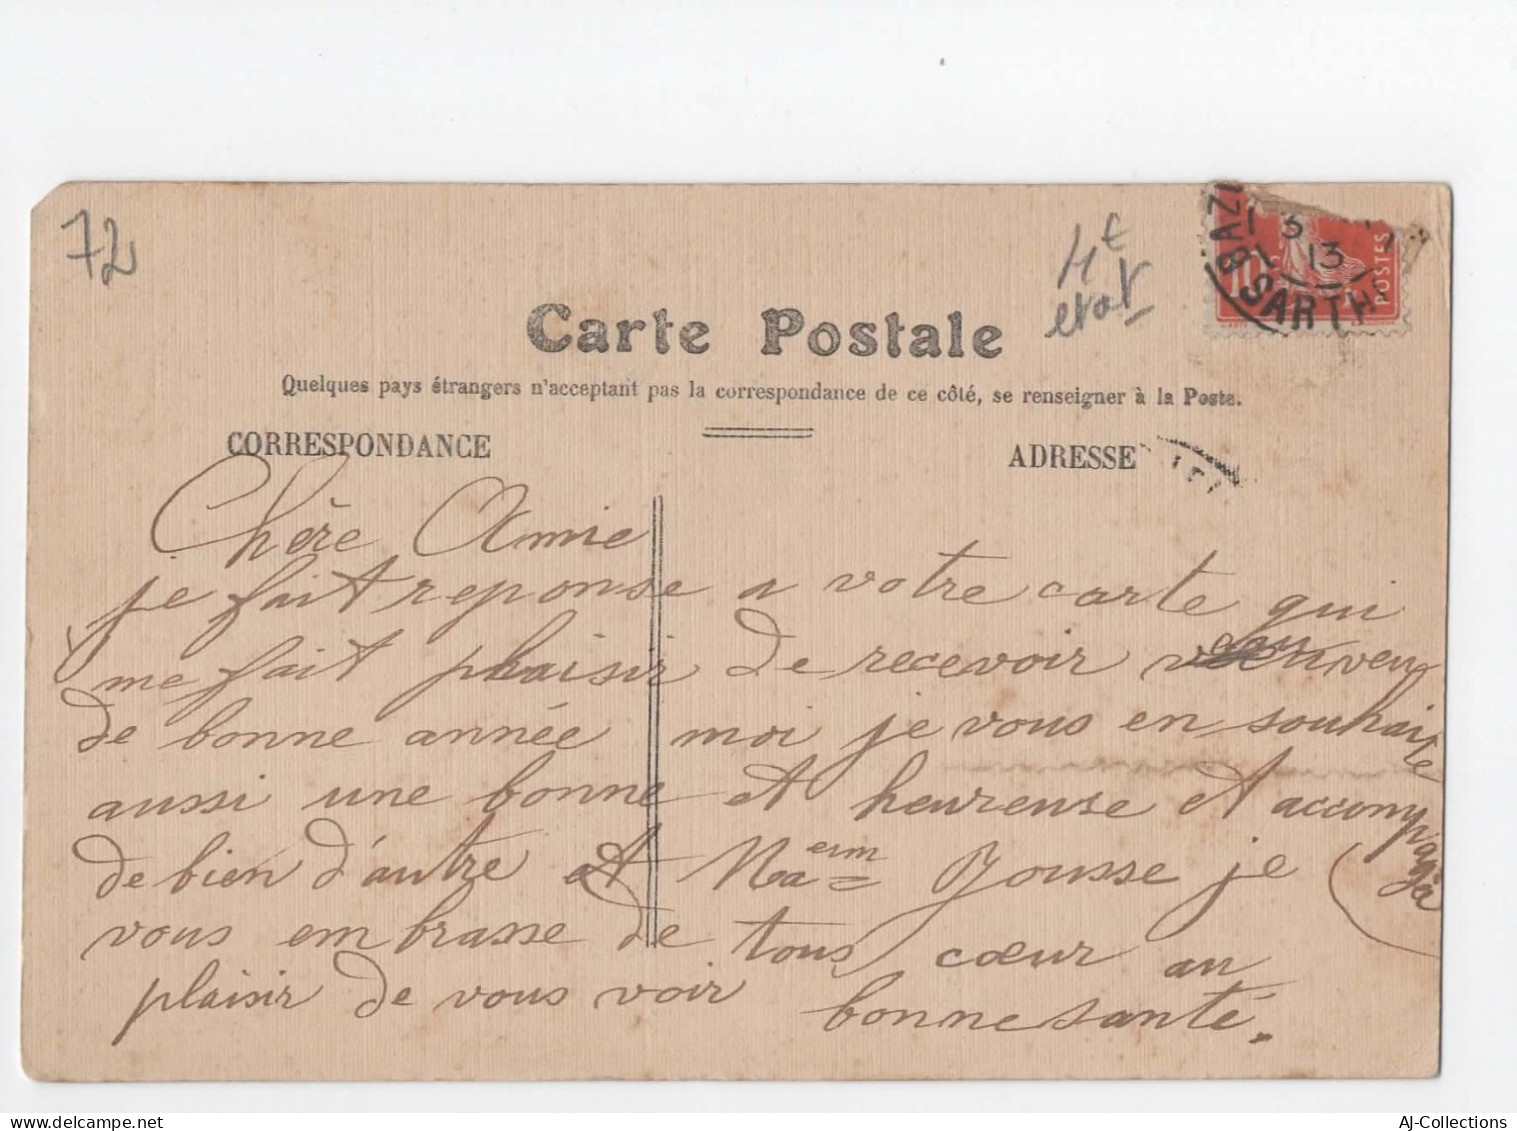 72
4€
etat
BAZ
13
13
SARTH
10
POSTES
Carte Postale
Quelques pays étrangers n'acceptant pas la correspondance de ce côté, se renseigner à la Poste.
CORRESPONDANCE
ADRESSE
Chère Amie
je fait reponse a votre carte qui
me fait plaisir de recevoir
de bonne année moi je vous en souhaite
aussi une bonne et heureuse et accompagnéé
de bien d'autre et Jousse je
vous embrasse de tous cœur au
plaisir de vous voir bonne santé.
AJ-Collections